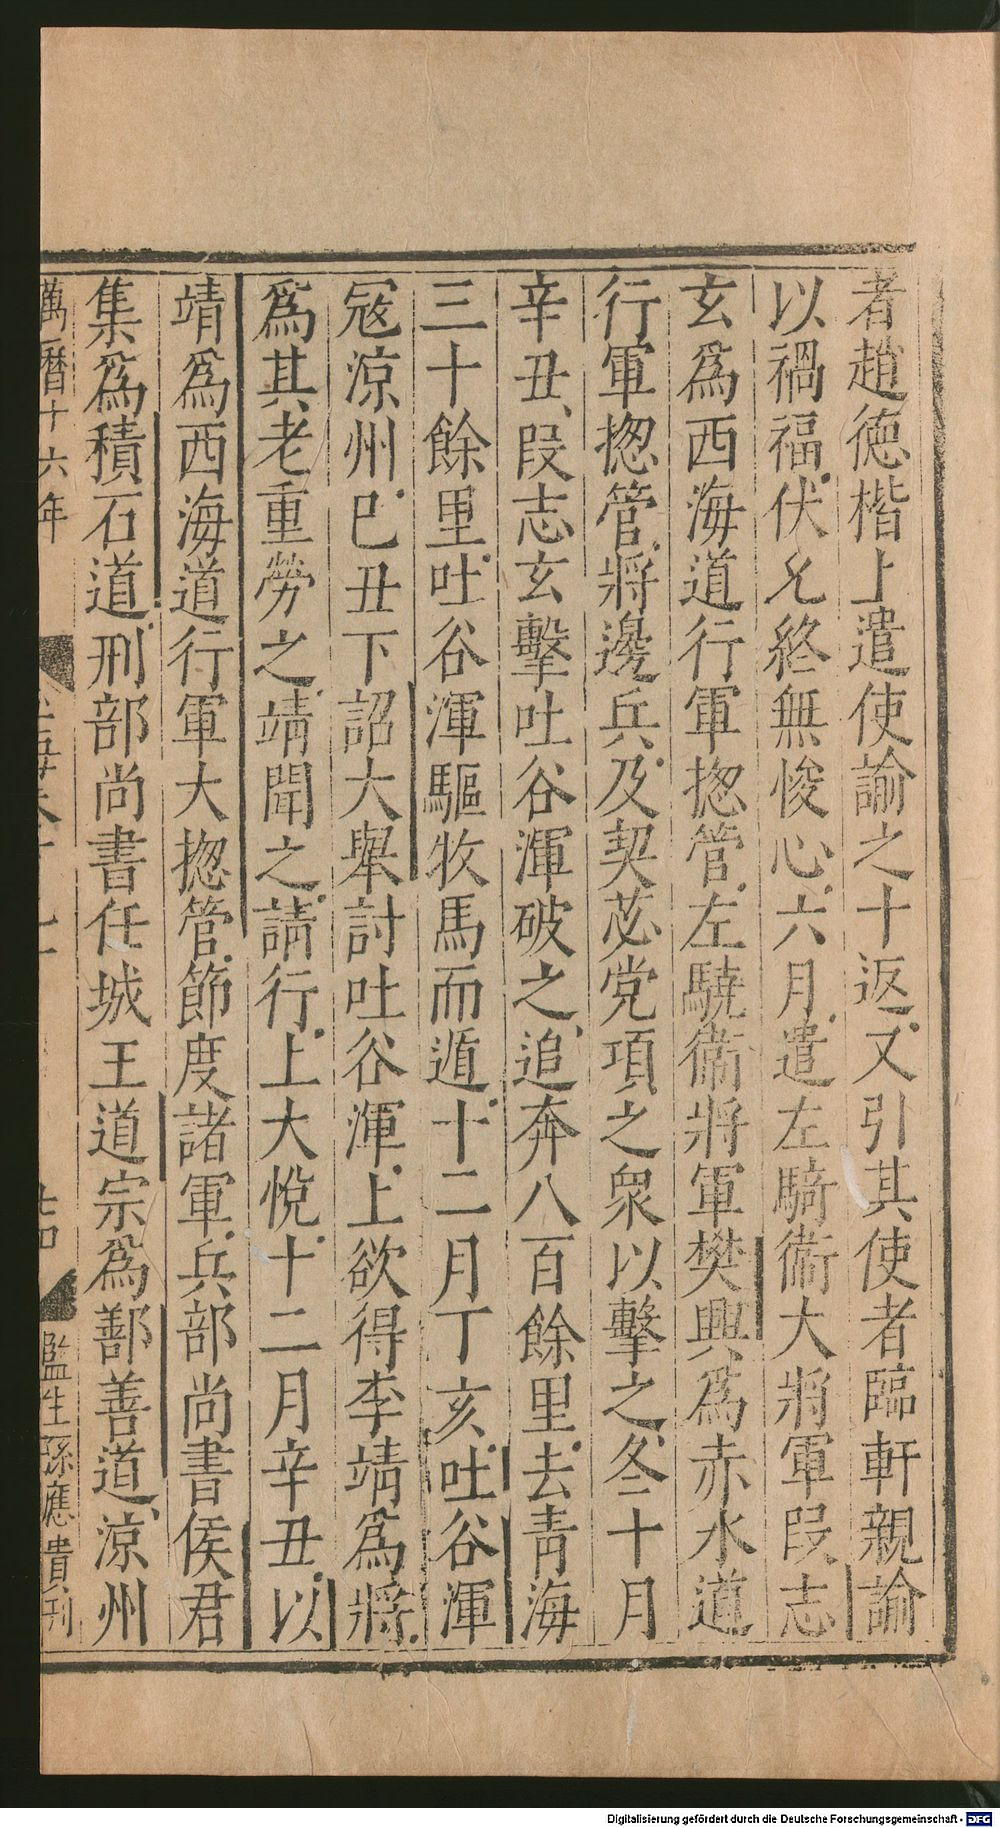 者趙德楷上遣使諭之十返又引其使者臨軒親諭
以禍福伏允終無悛心六月遣左驍衛大將軍段志
玄爲西海道行軍揔管左驍衞將軍樊興爲赤水道
行軍揔管將邊兵及契苾党項之衆以擊之冬十月
辛丑段志玄擊吐谷渾破之追奔八百餘里去青海
三十餘里吐谷渾驅牧馬而遁十二月丁亥吐谷渾
寇涼州已丑下詔大舉討吐谷渾上欲得李靖爲將
爲其老重勞之靖聞之請行上大悅十二月辛丑以
靖爲西海道行軍大揔管節度諸軍兵部尚書侯君
集爲積石道刑部尚書任城王道宗爲鄯善道涼州
萬曆十六年
監生孫應貴刊
Digitalisierung gefördert durch die Deutsche Forschungsgemeinschaft - DFG